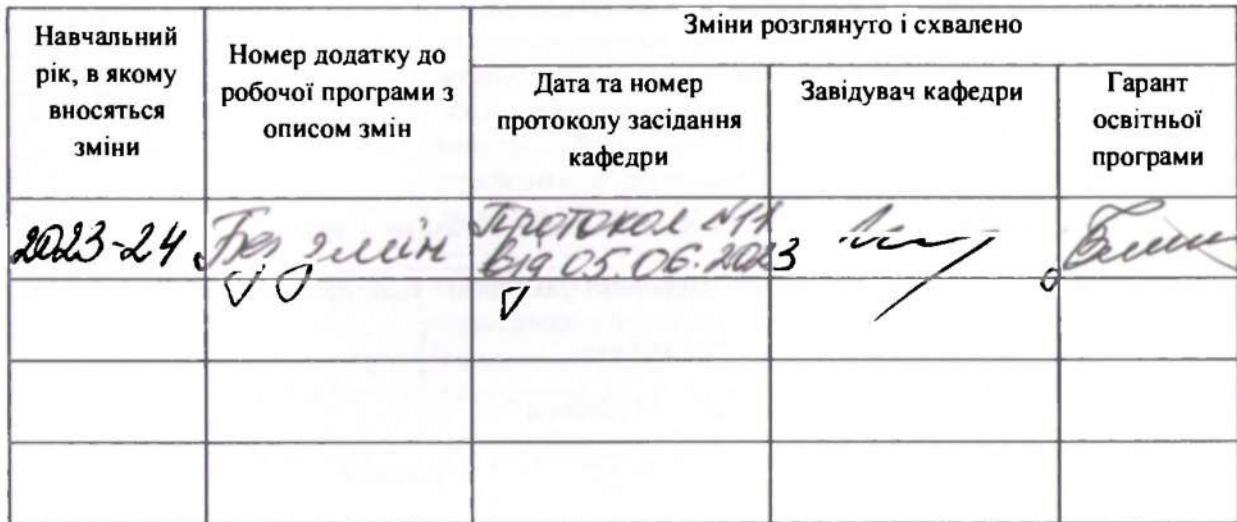 Навчальний
рік, в якому
вносяться
зміни
Номер додатку до
робочої програми з
описом змін
Зміни розглянуто і схвалено
Дата та номер
протоколу засідання
кафедри
Завідувач кафедри
Гарант
освітньої
програми
2023-24
Без змін
Протокол №11
від 05.06.2023